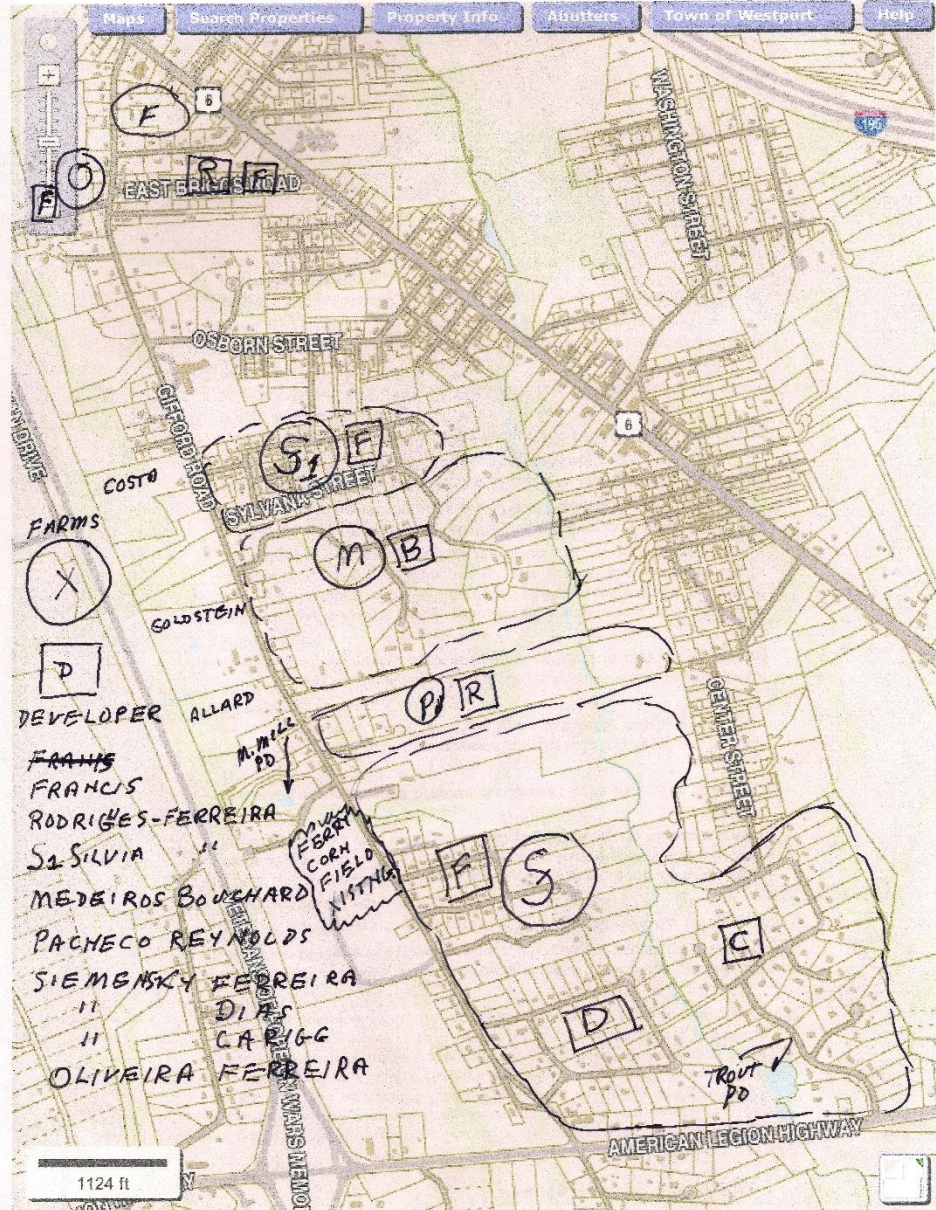 Maps
Search Properties
Property Info
Abutters
Town of Westport
Help
F
6
195
WASHINGTON STREET
O
F
R F
EAST BRIGGS ROAD
OSBORN STREET
6
GIFFORD ROAD
AN DRIVE
COSTA
S1 F
SYLVANA STREET
FARMS
X
M B
GOLDSTEIN
D
DEVELOPER
ALLARD
P R
CENTER STREET
M. MILL
PD
FRANCIS
RODRIGES-FERREIRA
S1 SILVIA "
MEDEIROS BOUCHARD
PACHECO REYNOLDS
SIEMENSKY FERREIRA
" DIAS
" CARIGG
OLIVEIRA FERREIRA
FERRY
CORN
FIELD
XISTNG
F S
C
D
TROUT
PD
AMERICAN LEGION HIGHWAY
1124 ft